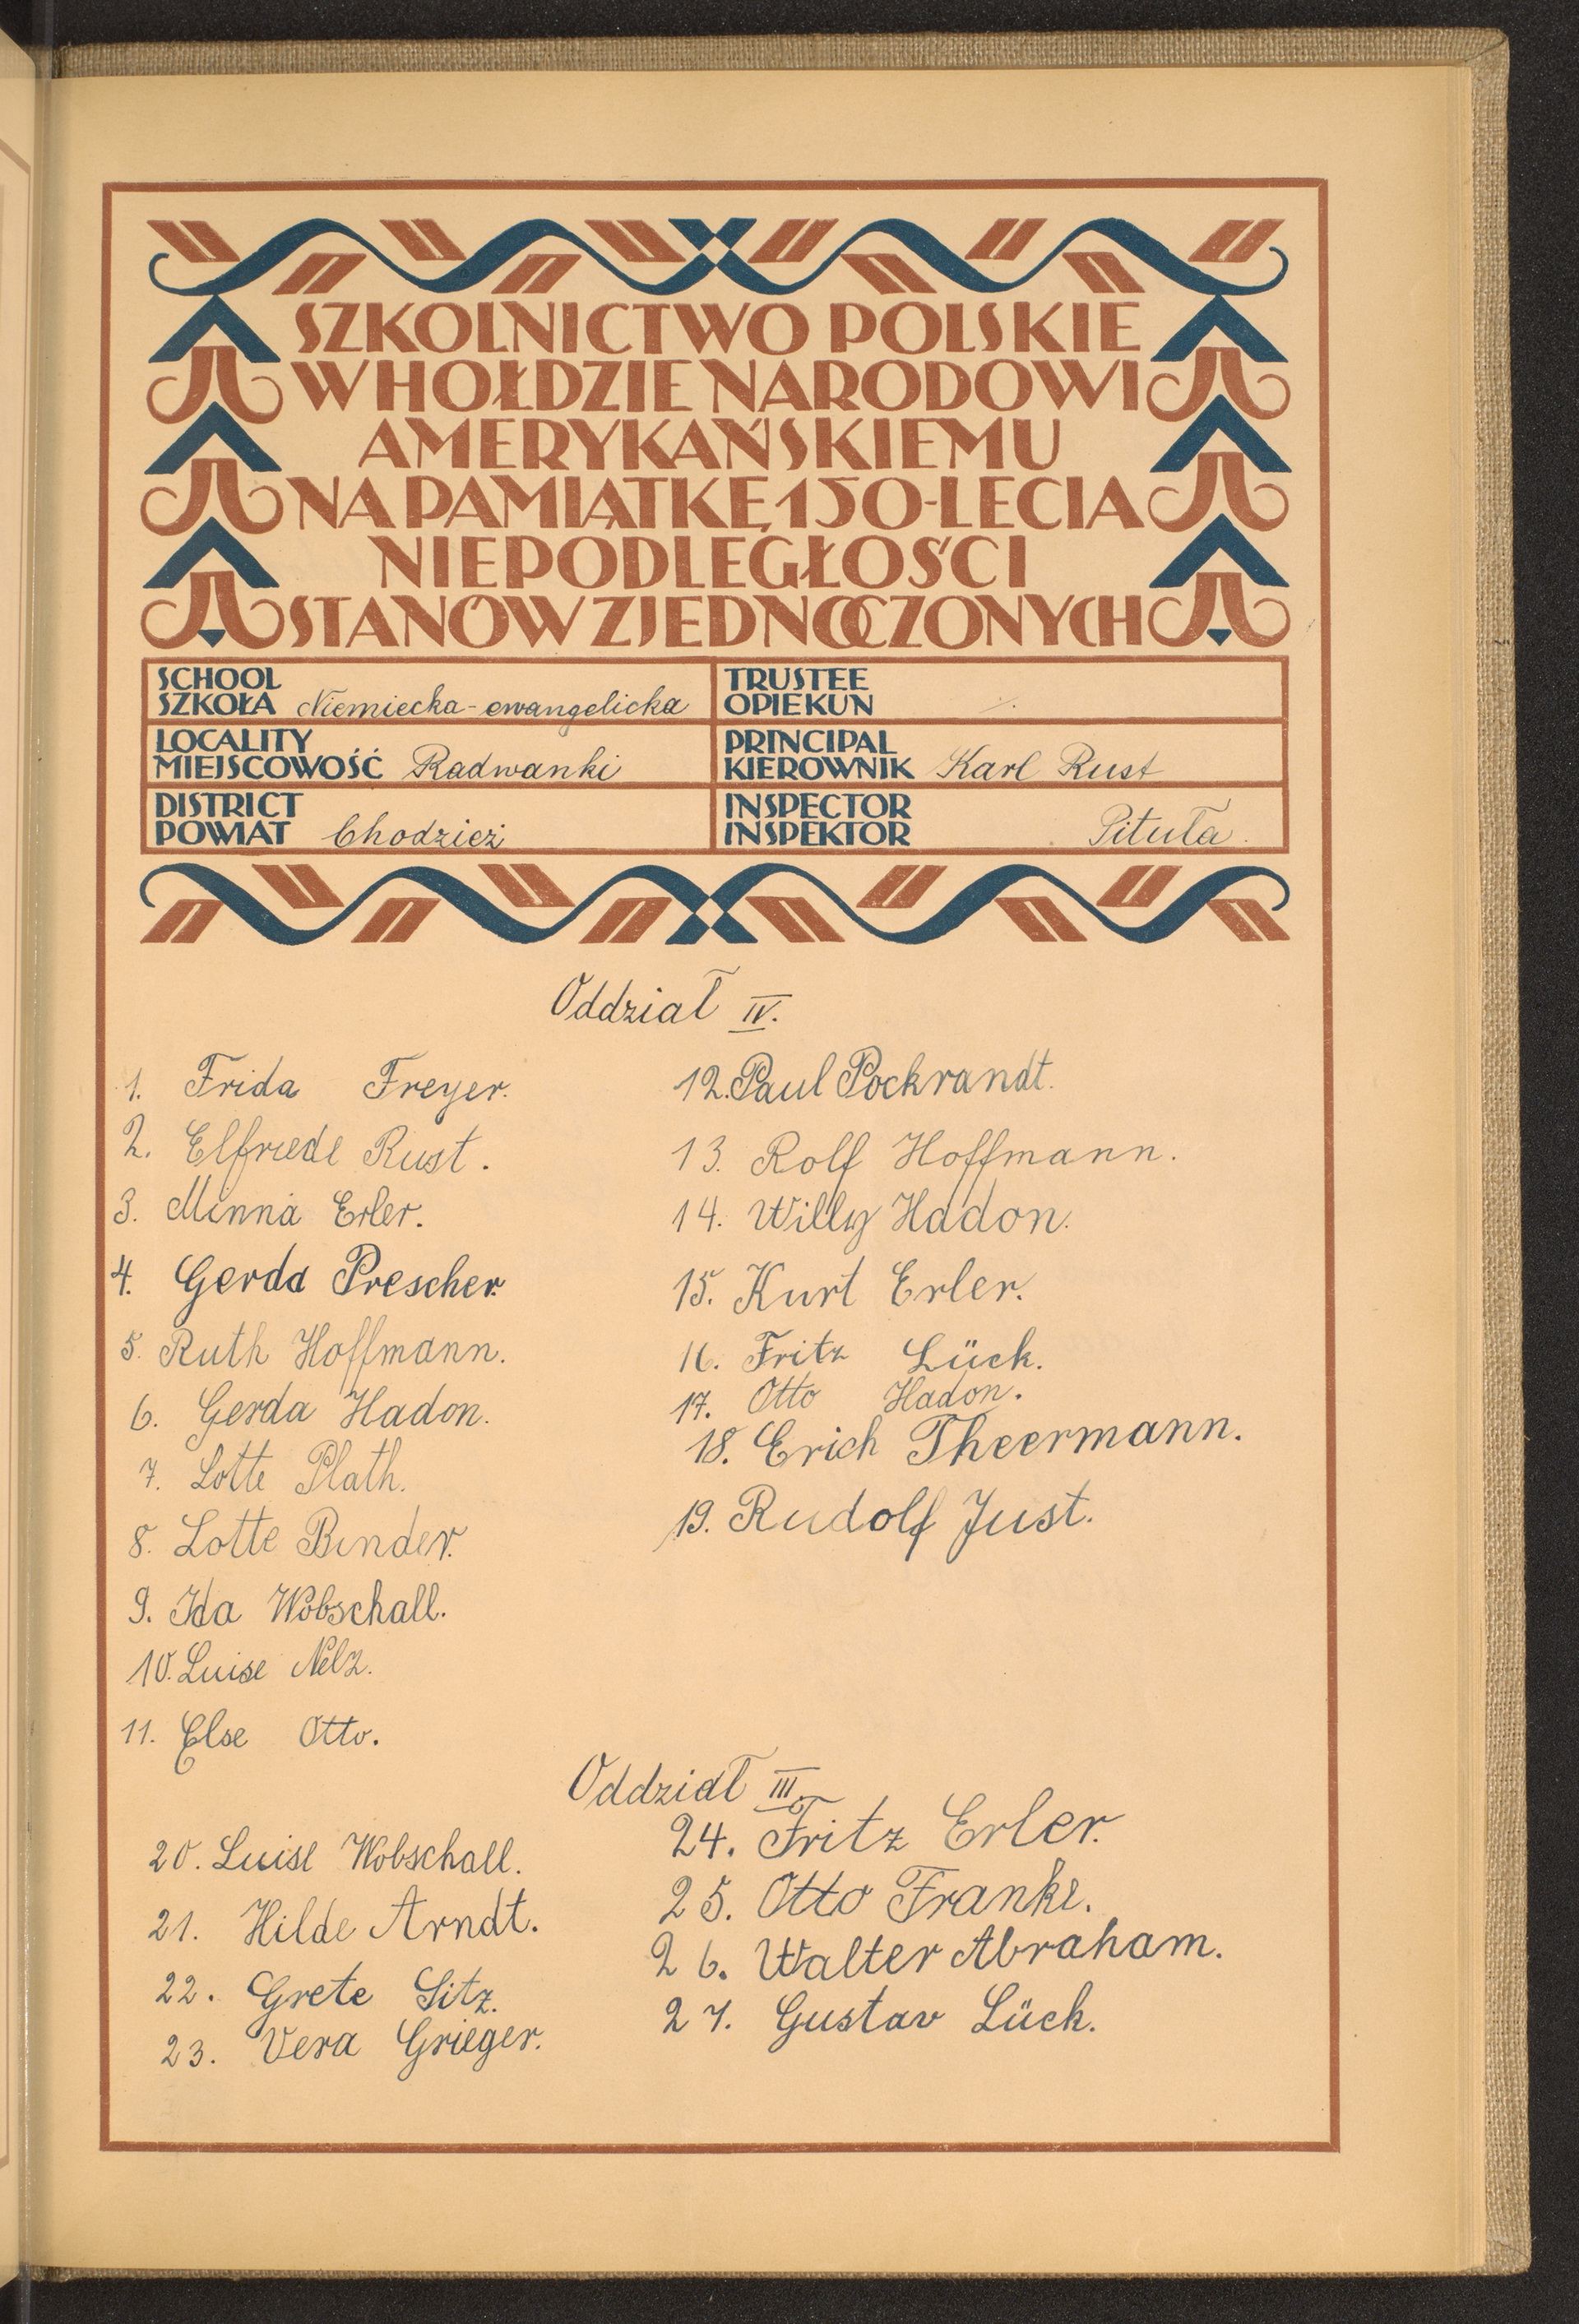 SZKOLNICTWO POLSKIE
W HOŁDZIE NARODOWI
AMERYKAŃSKIEMU
NA PAMIĄTKĘ 150-LECIA
NIEPODLEGŁOŚCI
STANÓW ZJEDNOCZONYCH
SCHOOL
SZKOŁA Niemiecka-ewangelicka
TRUSTEE
OPIEKUN
LOCALITY
MIEJSCOWOŚĆ Radwanki
PRINCIPAL
KIEROWNIK Karl Rust
DISTRICT
POWIAT Chodzież
INSPECTOR
INSPEKTOR Pituła.
Oddział IV.
1. Frida Freyer.
2. Elfriede Rust.
3. Minna Erler.
4. Gerda Prescher.
5. Ruth Hoffmann.
6. Gerda Hadon.
7. Lotte Plath.
8. Lotte Binder.
9. Ida Wobschall.
10. Luise Nelz.
11. Else Otto.
12. Paul Pockrandt.
13. Rolf Hoffmann.
14. Willy Hadon.
15. Kurt Erler.
16. Fritz Lück.
17. Otto Hadon.
18. Erich Theermann.
19. Rudolf Just.
Oddział III.
20. Luise Wobschall.
21. Hilde Arndt.
22. Grete Sitz.
23. Vera Grieger.
24. Fritz Erler.
25. Otto Franke.
26. Walter Abraham.
27. Gustav Lück.